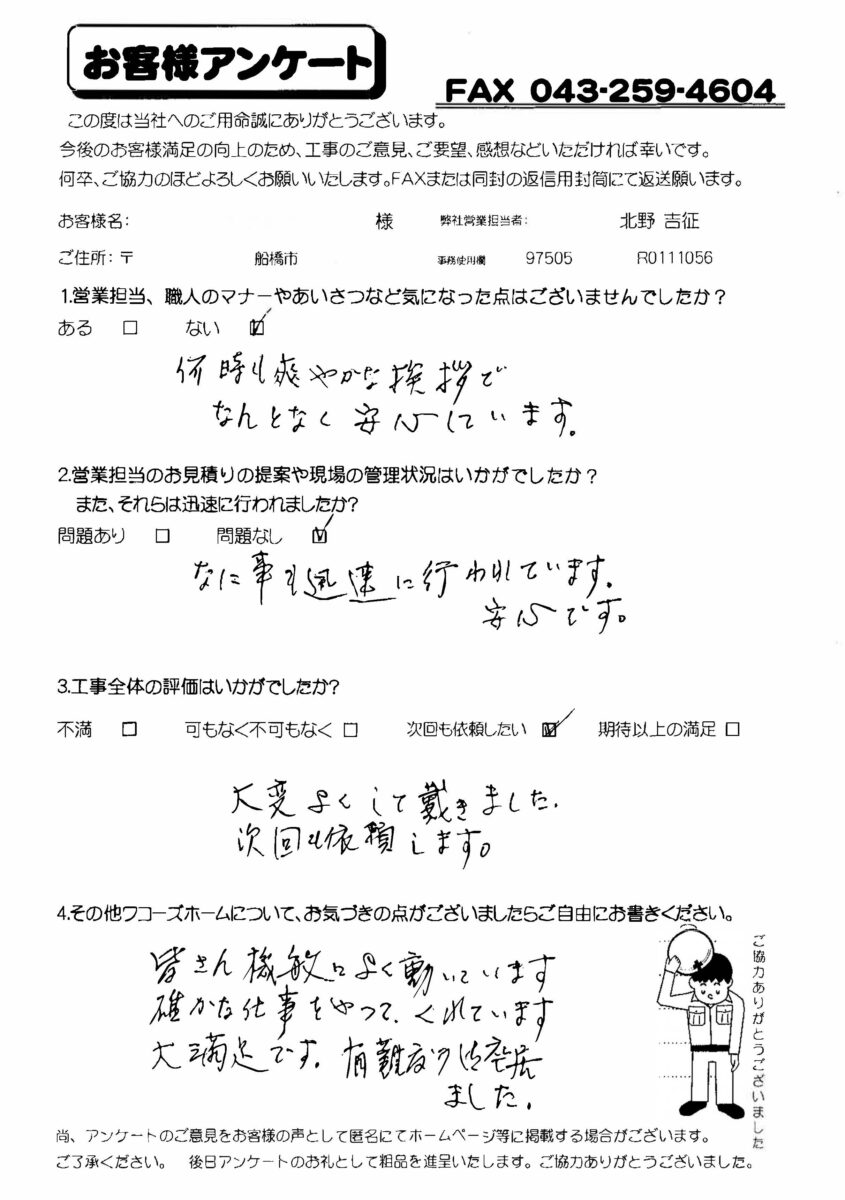 お客様アンケート
FAX 043-259-4604
この度は当社へのご用命誠にありがとうございます。
今後のお客様満足の向上のため、工事のご意見、ご要望、感想などいただければ幸いです。
何卒、ご協力のほどよろしくお願いいたします。FAXまたは同封の返信用封筒にて返送願います。
お客様名: 様 弊社営業担当者: 北野 吉征
ご住所:〒 船橋市 事務使用欄 97505 R0111056
1.営業担当、職人のマナーやあいさつなど気になった点はございませんでしたか?
ある □ ない ☑
何時も爽やかな挨拶で
なんとなく安心しています。
2.営業担当のお見積りの提案や現場の管理状況はいかがでしたか?
また、それらは迅速に行われましたか?
問題あり □ 問題なし ☑
なに事も迅速に行われています。
安心です。
3.工事全体の評価はいかがでしたか?
不満 □ 可もなく不可もなく □ 次回も依頼したい ☑ 期待以上の満足 □
大変よくして戴きました.
次回も依頼します。
4.その他ワコーズホームについて、お気づきの点がございましたらご自由にお書きください。
皆さん機敏によく動いています
確かな仕事をやって、くれています
大満足です。有難度う御座居
ました.
ご協力ありがとうございました
尚、アンケートのご意見をお客様の声として匿名にてホームページ等に掲載する場合がございます。
ご了承ください。 後日アンケートのお礼として粗品を進呈いたします。ご協力ありがとうございました。